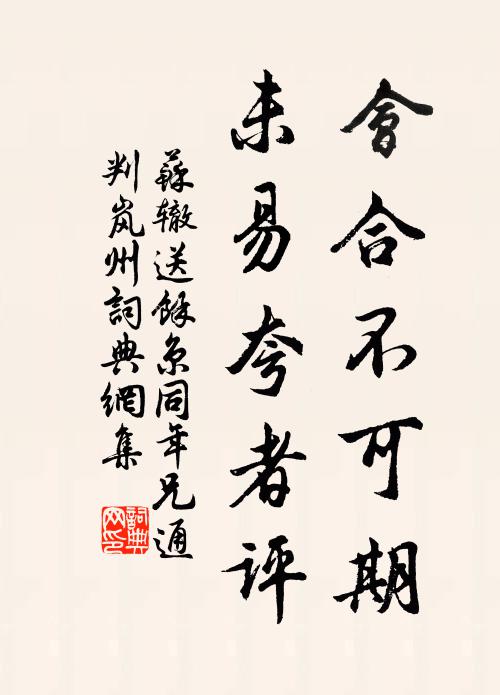 會合不可期
未易夸者評
蘇辙送餘京同年兄通
判岚州詞典網集
詞典
网印